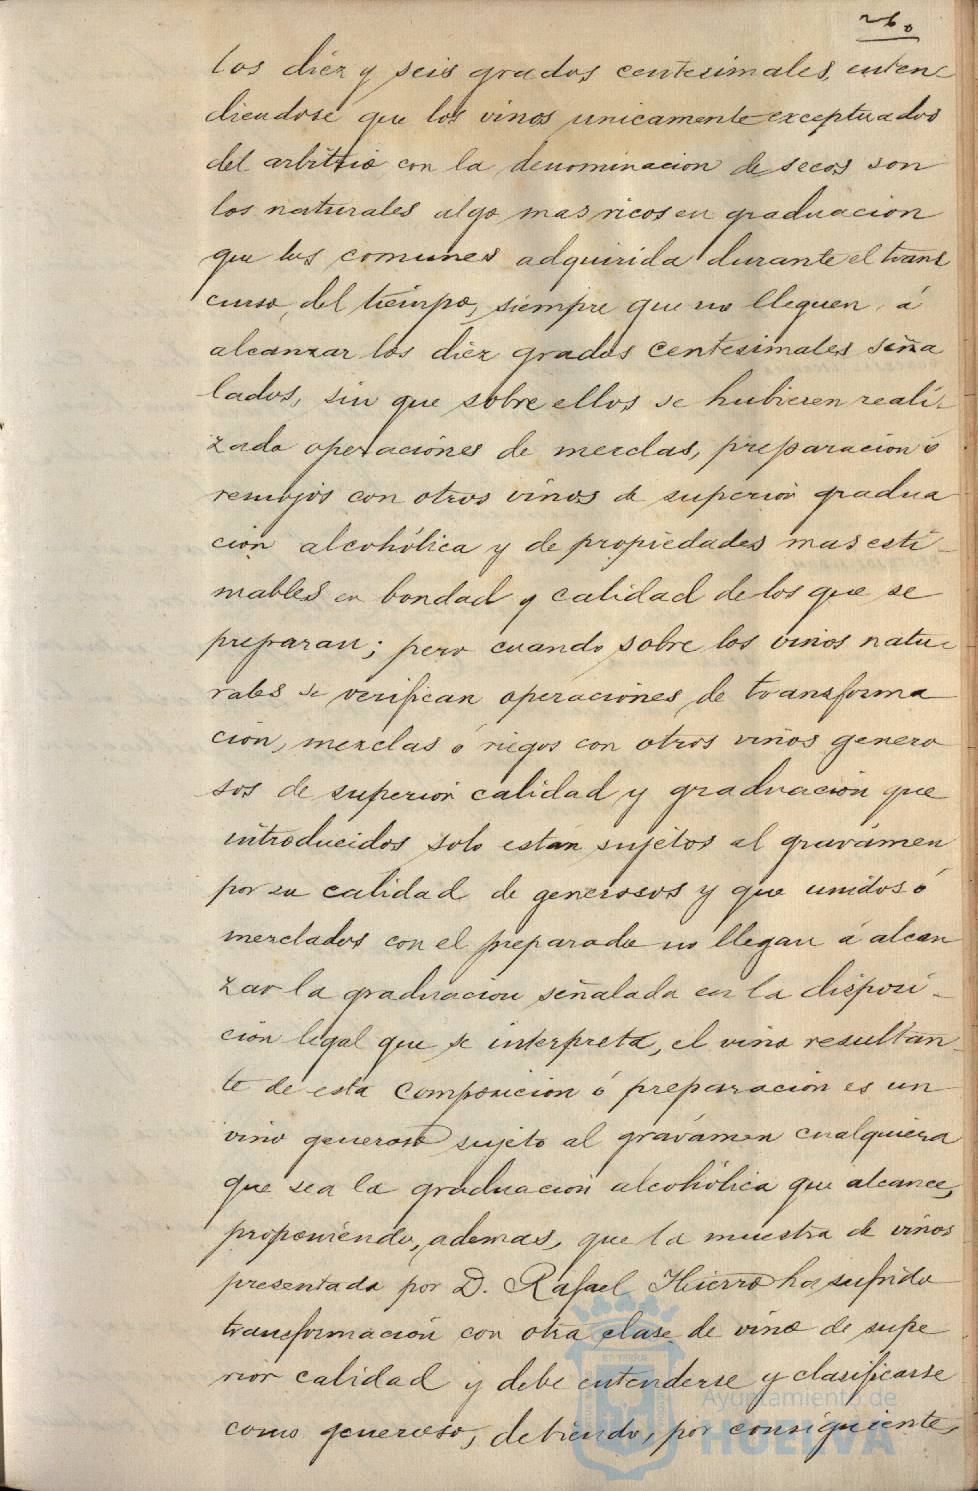 26.
los diez y seis grados centesimales, enten-
diendose que los vinos unicamente exceptuados
del arbitrio con la denominacion de secos son
los naturales algo mas ricos en graduacion
que los comunes adquirida durante el trans
curso del tiempo, siempre que no lleguen á
alcanzar los diez grados centesimales seña
lados, sin que sobre ellos se hubiesen reali-
zado operaciónes de mezclas, preparacion ó
remojos con otros vinos de superior gradua
ción alcohólica y de propiedades mas esti-
mables en bondad y calidad de los que se
preparan; pero cuando sobre los vinos natu-
rales se verifican operaciones de transforma
ción, mezclas ó riegos con otros vinos genero
sos de superior calidad y graduación que
introducidos solo están sujetos al gravámen
por su calidad de generosos y que unidos ó
mezclados con el preparado no llegan á alcan
zar la graduacion señalada en la disposi-
ción legal que se interpreta, el vino resultan-
te de esta composicion ó preparación es un
vino generoso sujeto al gravámen cualquiera
que sea la graduación alcohólica que alcance,
proponiendo, ademas, que la muestra de vinos
presentada por D. Rafael Hierro ha sufrido
transformación con otra clase de vino de supe
rior calidad y debe entenderse y clasificarse
como generoso, debiendo, por consiguiente,
Ayuntamiento de
HUELVA